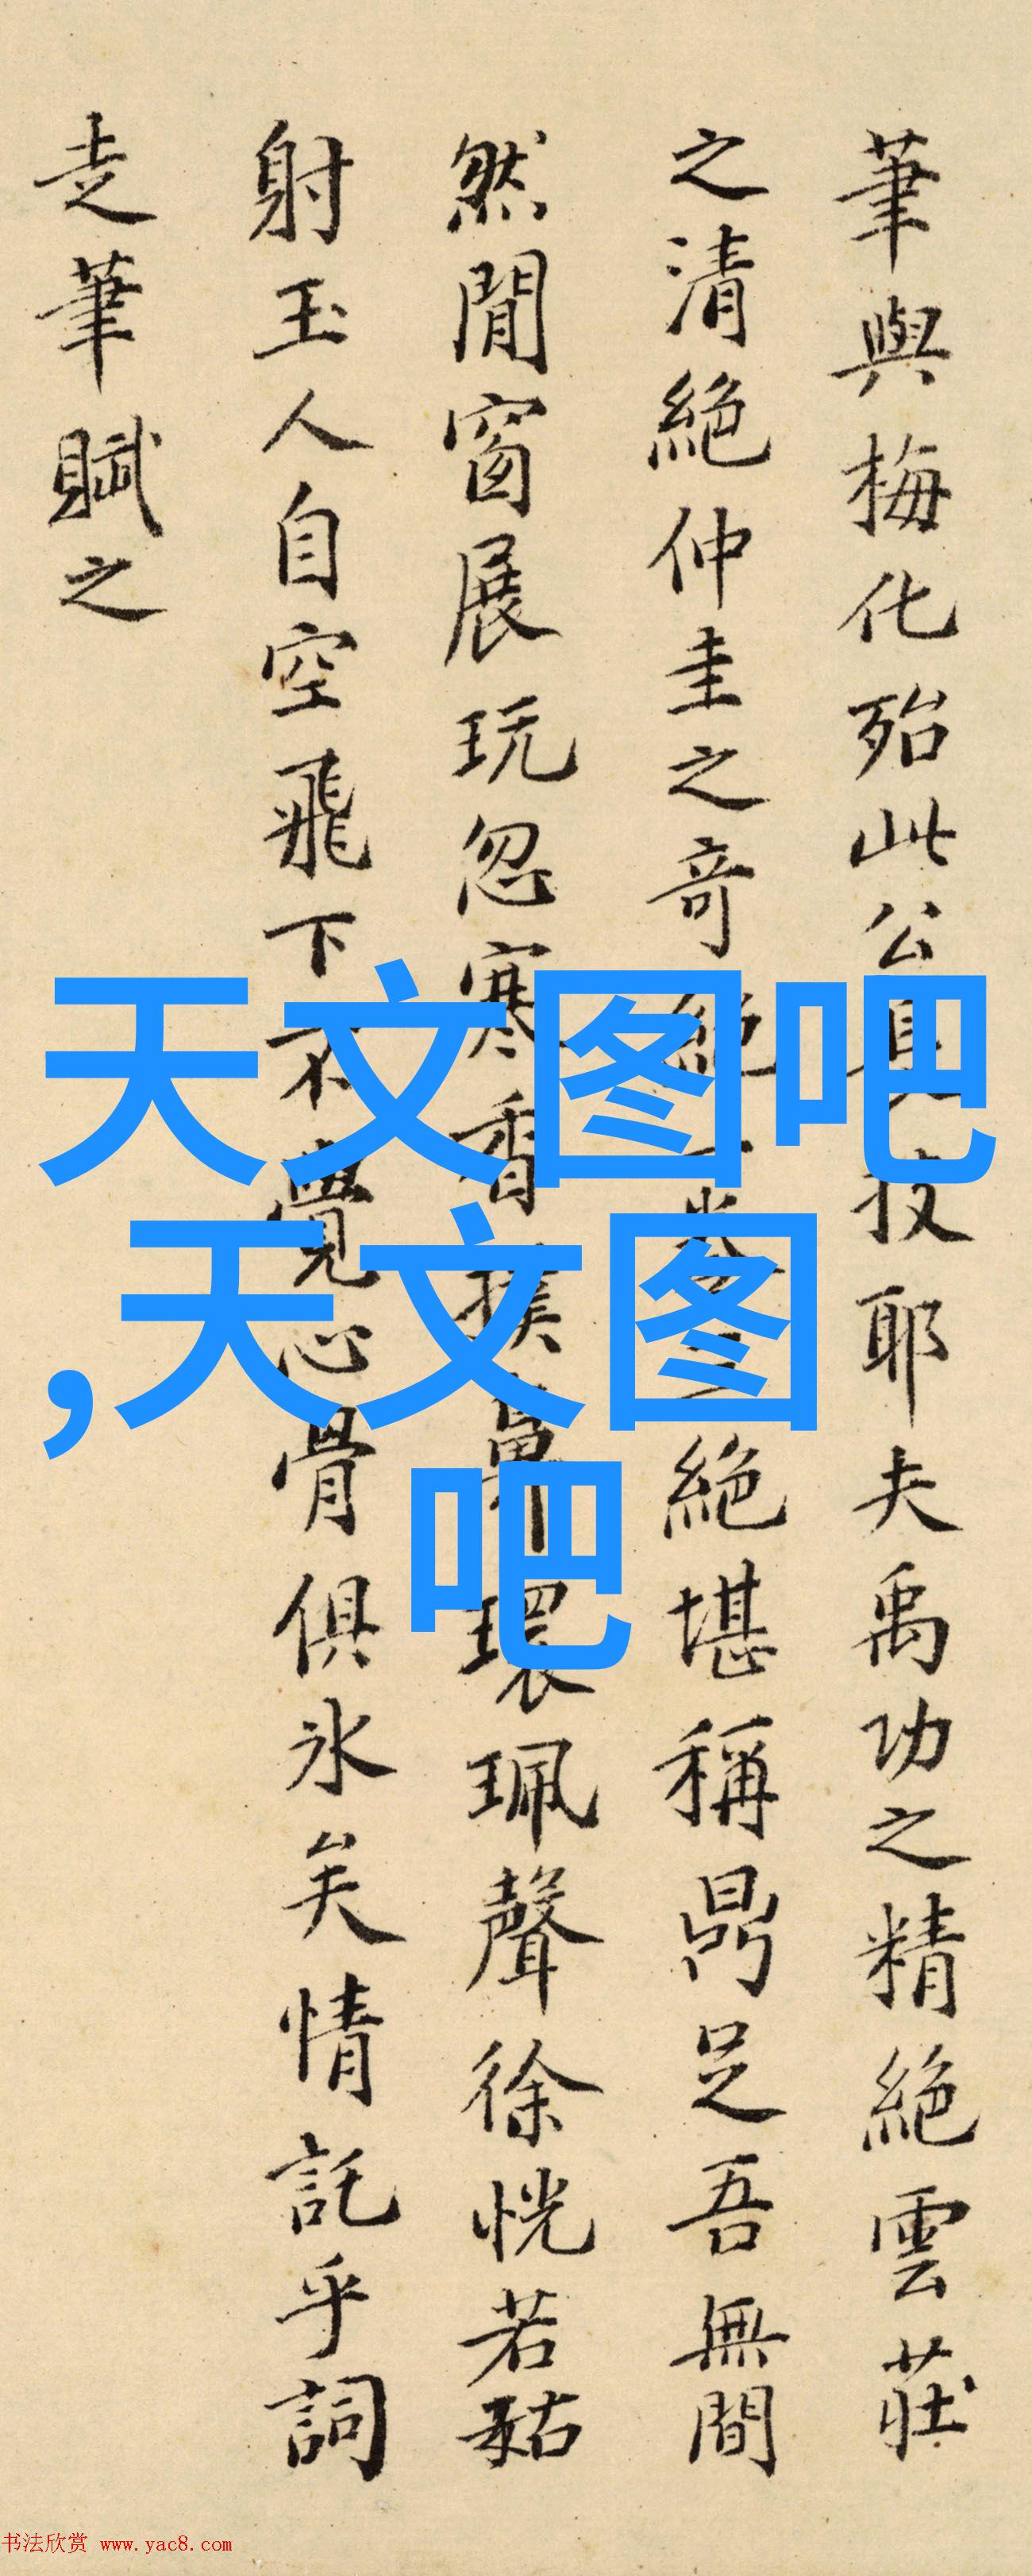 筆與梅化殆此公具技耶夫禹功之精絕雲莊
之清絕仲圭之奇絕卷三絕堪稱鼎足吾無間
然閒窗展玩忽寒香撲鼻環珮聲徐恍若𮂹
射玉人自空飛下不覺心骨俱冰矣情託乎詞
走筆賦之
天文图吧
,天文图
吧
书法欣赏 www.yac8.com